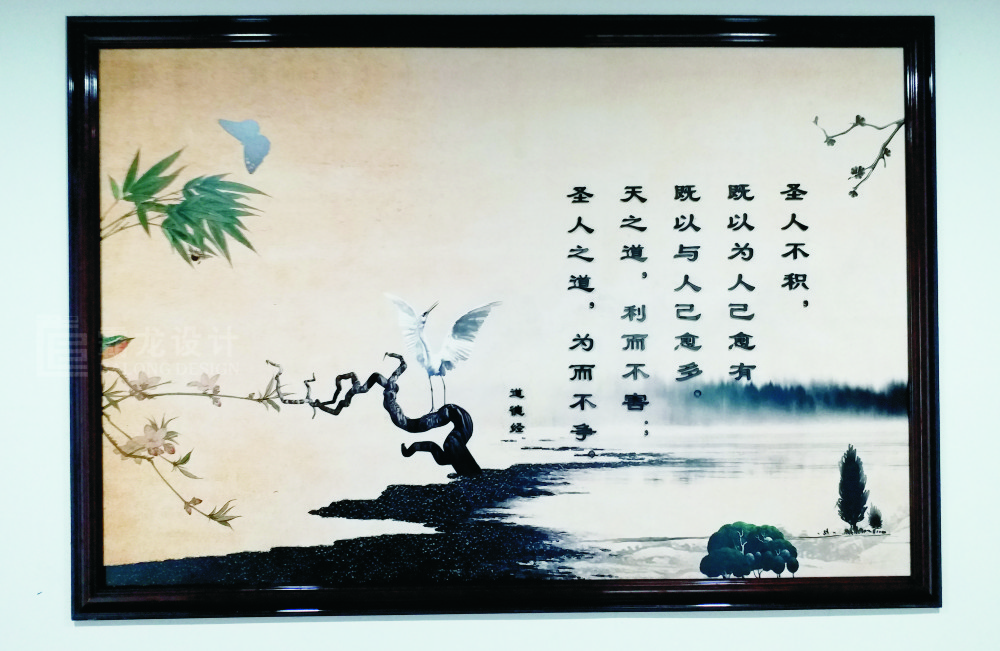 圣人不积，
既以为人己愈有
既以与人己愈多。
天之道，利而不害；
圣人之道，为而不争。
道德经
龙设计
LONG DESIGN